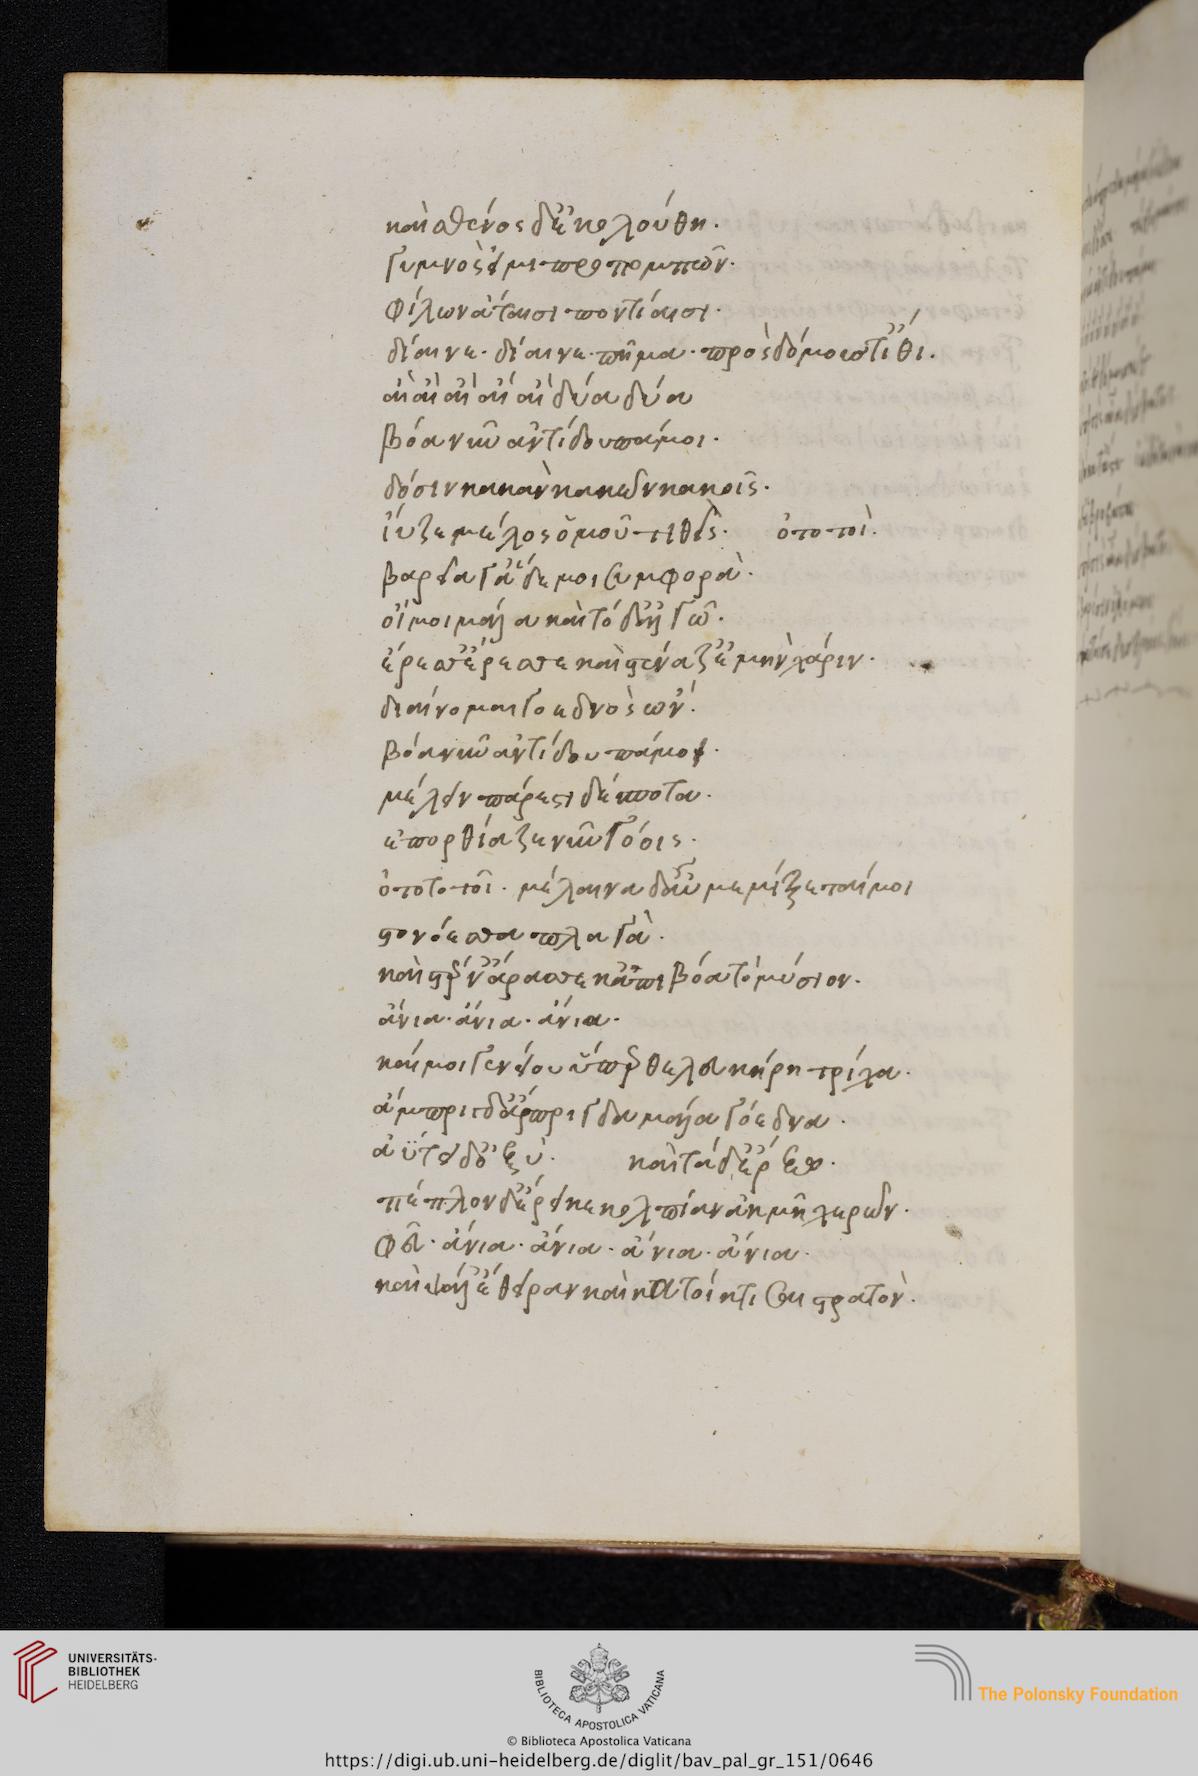 καὶ σθένος δ' ἐκολούθη.
γυμνὸς εἰμι προπομπῶν.
φίλων ἄταισι ποντίαισι.
δίαινε. δίαινε. πῆμα. πρὸς δόμους τ' ἴθι.
αἲ αἲ αἲ αἲ αἲ δύα δύα
βόα νῦν ἀντίδουπά μοι.
δόσιν κακὰν κακῶν κακοῖς.
ἴυζε μέλος ὁμοῦ τιθείς. ὀτοτοῖ.
βαρεῖα γ' ἅδε μοι συμφορὰ.
οἴμοι μάλα καὶ τόδ' ἀλγῶ.
ἔρεσσ' ἔρεσσε καὶ στέναζ' ἐμὴν χάριν.
διαίνομαι γοεδνὸς ὤν.
βόα νῦν ἀντίδουπά μοι.
μέλειν πάρεστι δέσποτα.
ἐπορθίαζε νῦν γόοις.
ὀτοτοτοῖ. μέλαινα δ' αὖ μεμίξεταί μοι
στονόεσσα πλαγὰ.
καὶ στέρν' ἄρασσε κἀπιβόα τὸ μύσιον.
ἄνια. ἄνια. ἄνια.
καί μοι γενείου ὕπερθε λευκήρη τρίχα.
ἄπριγδ' ἄπριγδα μάλα γόεδνα.
ἀΰτει δ' ὀξύ. καὶ τάδ' ἔρξω.
πέπλον δ' ἔρεικε κολπίαν ἀκμῇ χερῶν.
φεῦ. ἄνια. ἄνια. ἄνια. ἄνια.
καὶ ψάλλ' ἔθειραν καὶ κατοίκτισαι στρατὸν.
UNIVERSITÄTS-
BIBLIOTHEK
HEIDELBERG
BIBLIOTECA APOSTOLICA VATICANA
The Polonsky Foundation
© Biblioteca Apostolica Vaticana
https://digi.ub.uni-heidelberg.de/diglit/bav_pal_gr_151/0646